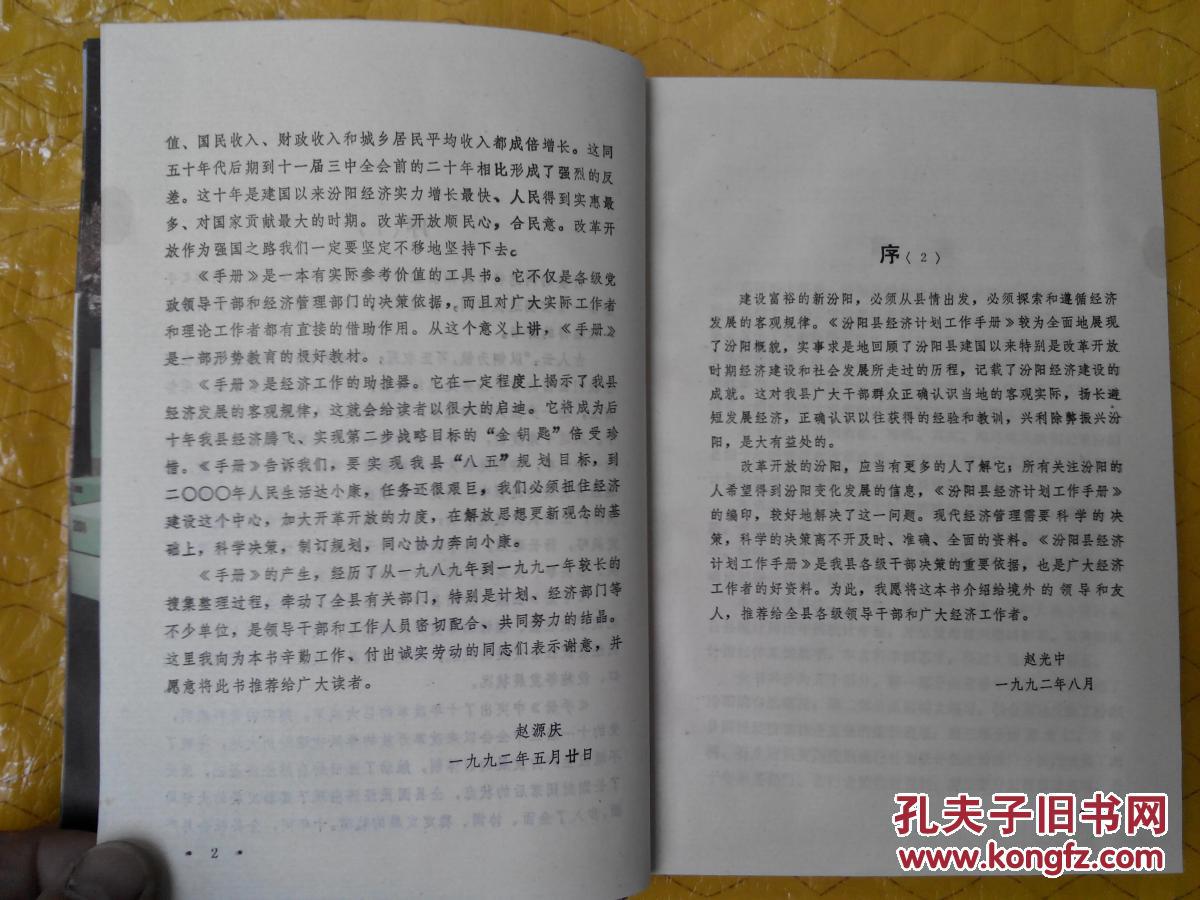 值、国民收入、财政收入和城乡居民平均收入都成倍增长。这同
五十年代后期到十一届三中全会前的二十年相比形成了强烈的反
差。这十年是建国以来汾阳经济实力增长最快、人民得到实惠最
多、对国家贡献最大的时期。改革开放顺民心，合民意。改革开
放作为强国之路我们一定要坚定不移地坚持下去。
《手册》是一本有实际参考价值的工具书。它不仅是各级党
政领导干部和经济管理部门的决策依据，而且对广大实际工作者
和理论工作者都有直接的借助作用。从这个意义上讲，《手册》
是一部形势教育的极好教材。
《手册》是经济工作的助推器。它在一定程度上揭示了我县
经济发展的客观规律，这就会给读者以很大的启迪。它将成为后
十年我县经济腾飞、实现第二步战略目标的“金钥匙”倍受珍
惜。《手册》告诉我们，要实现我县“八五”规划目标，到
二〇〇〇年人民生活达小康，任务还很艰巨，我们必须扭住经济
建设这个中心，加大开革开放的力度，在解放思想更新观念的基
础上，科学决策，制订规划，同心协力奔向小康。
《手册》的产生，经历了从一九八九年到一九九一年较长的
搜集整理过程，牵动了全县有关部门，特别是计划、经济部门等
不少单位，是领导干部和工作人员密切配合、共同努力的结晶。
这里我向为本书辛勤工作、付出诚实劳动的同志们表示谢意，并
愿意将此书推荐给广大读者。
赵源庆
一九九二年五月廿日
• 2 •
序〈2〉
建设富裕的新汾阳，必须从县情出发，必须探索和遵循经济
发展的客观规律。《汾阳县经济计划工作手册》较为全面地展现
了汾阳概貌，实事求是地回顾了汾阳县建国以来特别是改革开放
时期经济建设和社会发展所走过的历程，记载了汾阳经济建设的
成就。这对我县广大干部群众正确认识当地的客观实际，扬长避
短发展经济，正确认识以往获得的经验和教训，兴利除弊振兴汾
阳，是大有益处的。
改革开放的汾阳，应当有更多的人了解它；所有关注汾阳的
人希望得到汾阳变化发展的信息，《汾阳县经济计划工作手册》
的编印，较好地解决了这一问题。现代经济管理需要科学的决
策，科学的决策离不开及时、准确、全面的资料。《汾阳县经济
计划工作手册》是我县各级干部决策的重要依据，也是广大经济
工作者的好资料。为此，我愿将这本书介绍给境外的领导和友
人，推荐给全县各级领导干部和广大经济工作者。
赵光中
一九九二年八月
孔夫子旧书网
www.kongfz.com